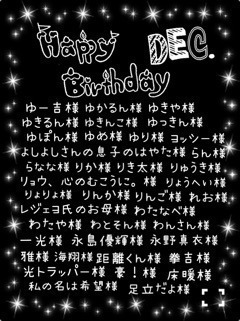 Happy DEC.
Birthday
ゆー吉様 ゆかるん様 ゆきや様
ゆきるん様 ゆきんこ様 ゆっきん様
ゆぽん様 ゆめ様 ゆり様 ヨッシー様
よしよしさんの息子のはやた様 らん様
らなな様 りか様 りき太様 りゅうき様
リョウ、心のむこうに。様 りょうへい様
りょりょ様 りんか様 りんご様 れお様
レジェヨ氏のお母様 わたなべ様
わたや様 わとそん様 わんさん様
一光様 永島優輝様 永野真衣様
雅様 海翔様 距離くん様 拳吉様
光トラッパー様 豪!様 床暖様
私の名は希望様 足立だよ様